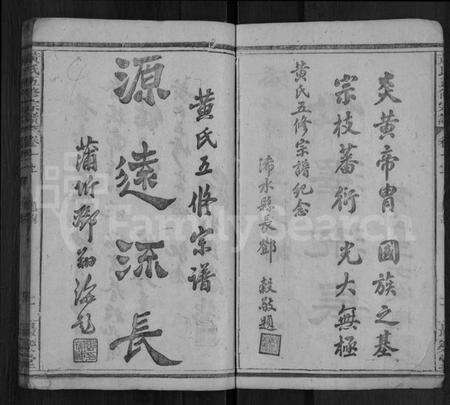 炎黃帝胄國族之基
宗枝蕃衍光大無極
黃氏五修宗譜紀念
浠水縣長鄧 毅敬題
黃氏五修宗譜
源遠流長
蒲圻鄧翔
FamilySearch